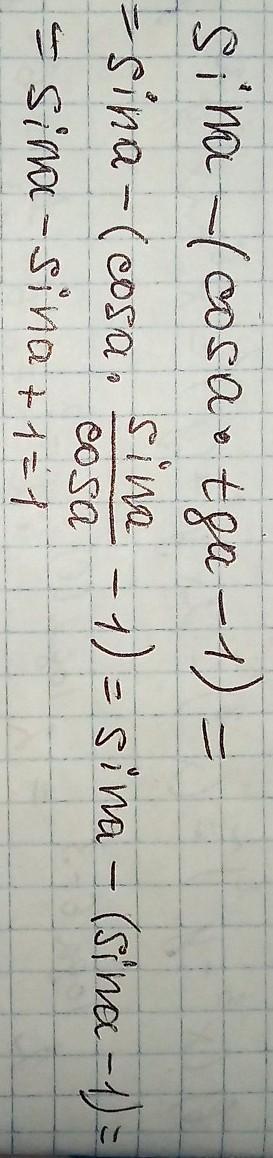 sina - (cosa · tga - 1) =
= sina - (cosa · sina/cosa - 1) = sina - (sina - 1) =
= sina - sina + 1 = 1